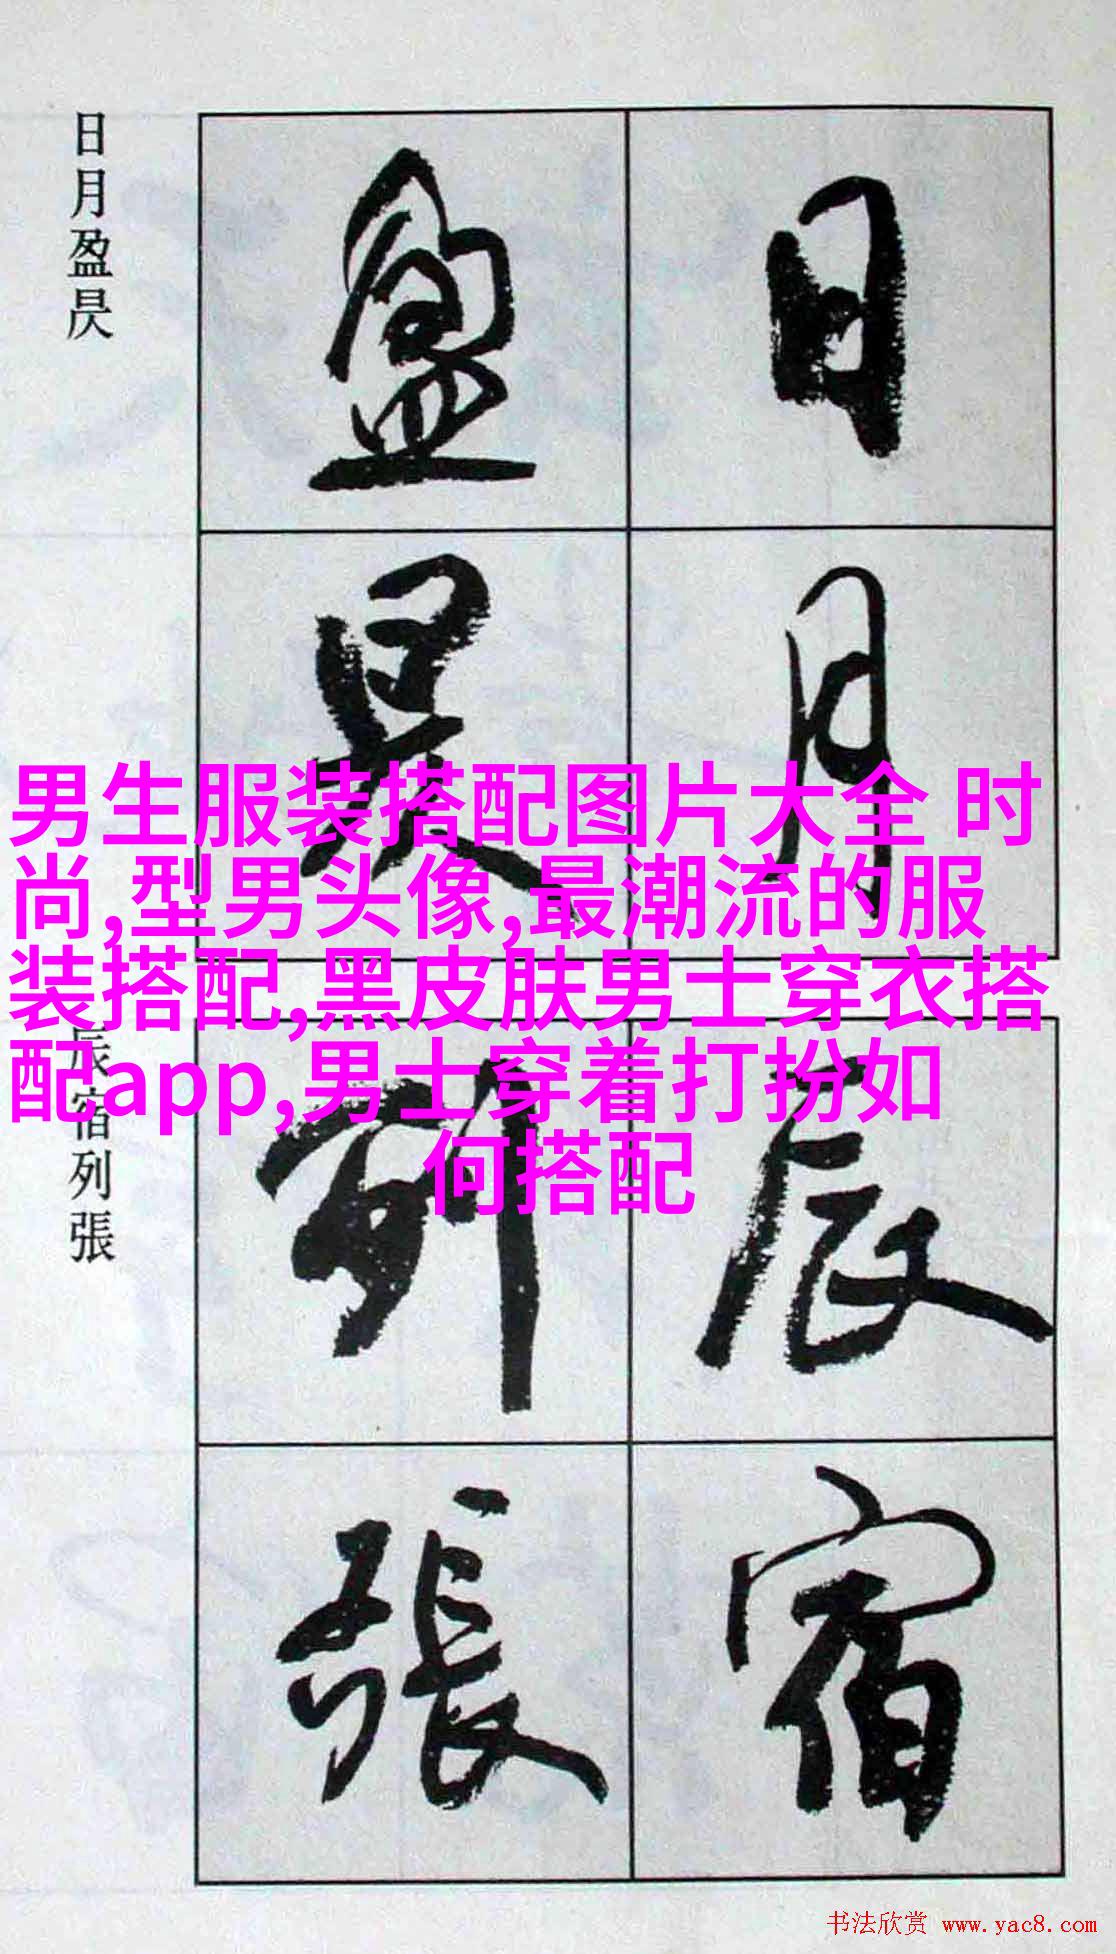 日月盈昃
日
月
盈
昃
男生服装搭配图片大全 时
尚,型男头像,最潮流的服
装搭配,黑皮肤男士穿衣搭
配app,男士穿着打扮如
何搭配
辰宿列張
辰
宿
列
張
书法欣赏 www.yac8.com